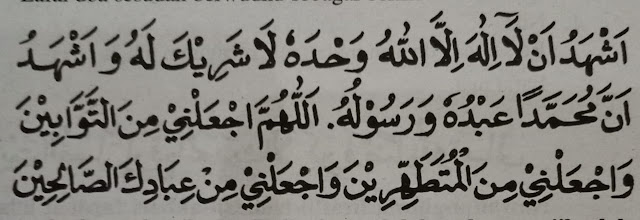 اَشْهَدُ اَنْ لَآ اِلٰهَ اِلَّا اللهُ وَحْدَهٗ لَا شَرِيْكَ لَهُ وَ اَشْهَدُ
اَنَّ مُحَمَّدًا عَبْدُهٗ وَ رَسُوْلُهُ. اَللّٰهُمَّ اجْعَلْنِيْ مِنَ التَّوَّابِيْنَ
وَ اجْعَلْنِيْ مِنَ الْمُتَطَهِّرِيْنَ وَ اجْعَلْنِيْ مِنْ عِبَادِكَ الصَّالِحِيْنَ